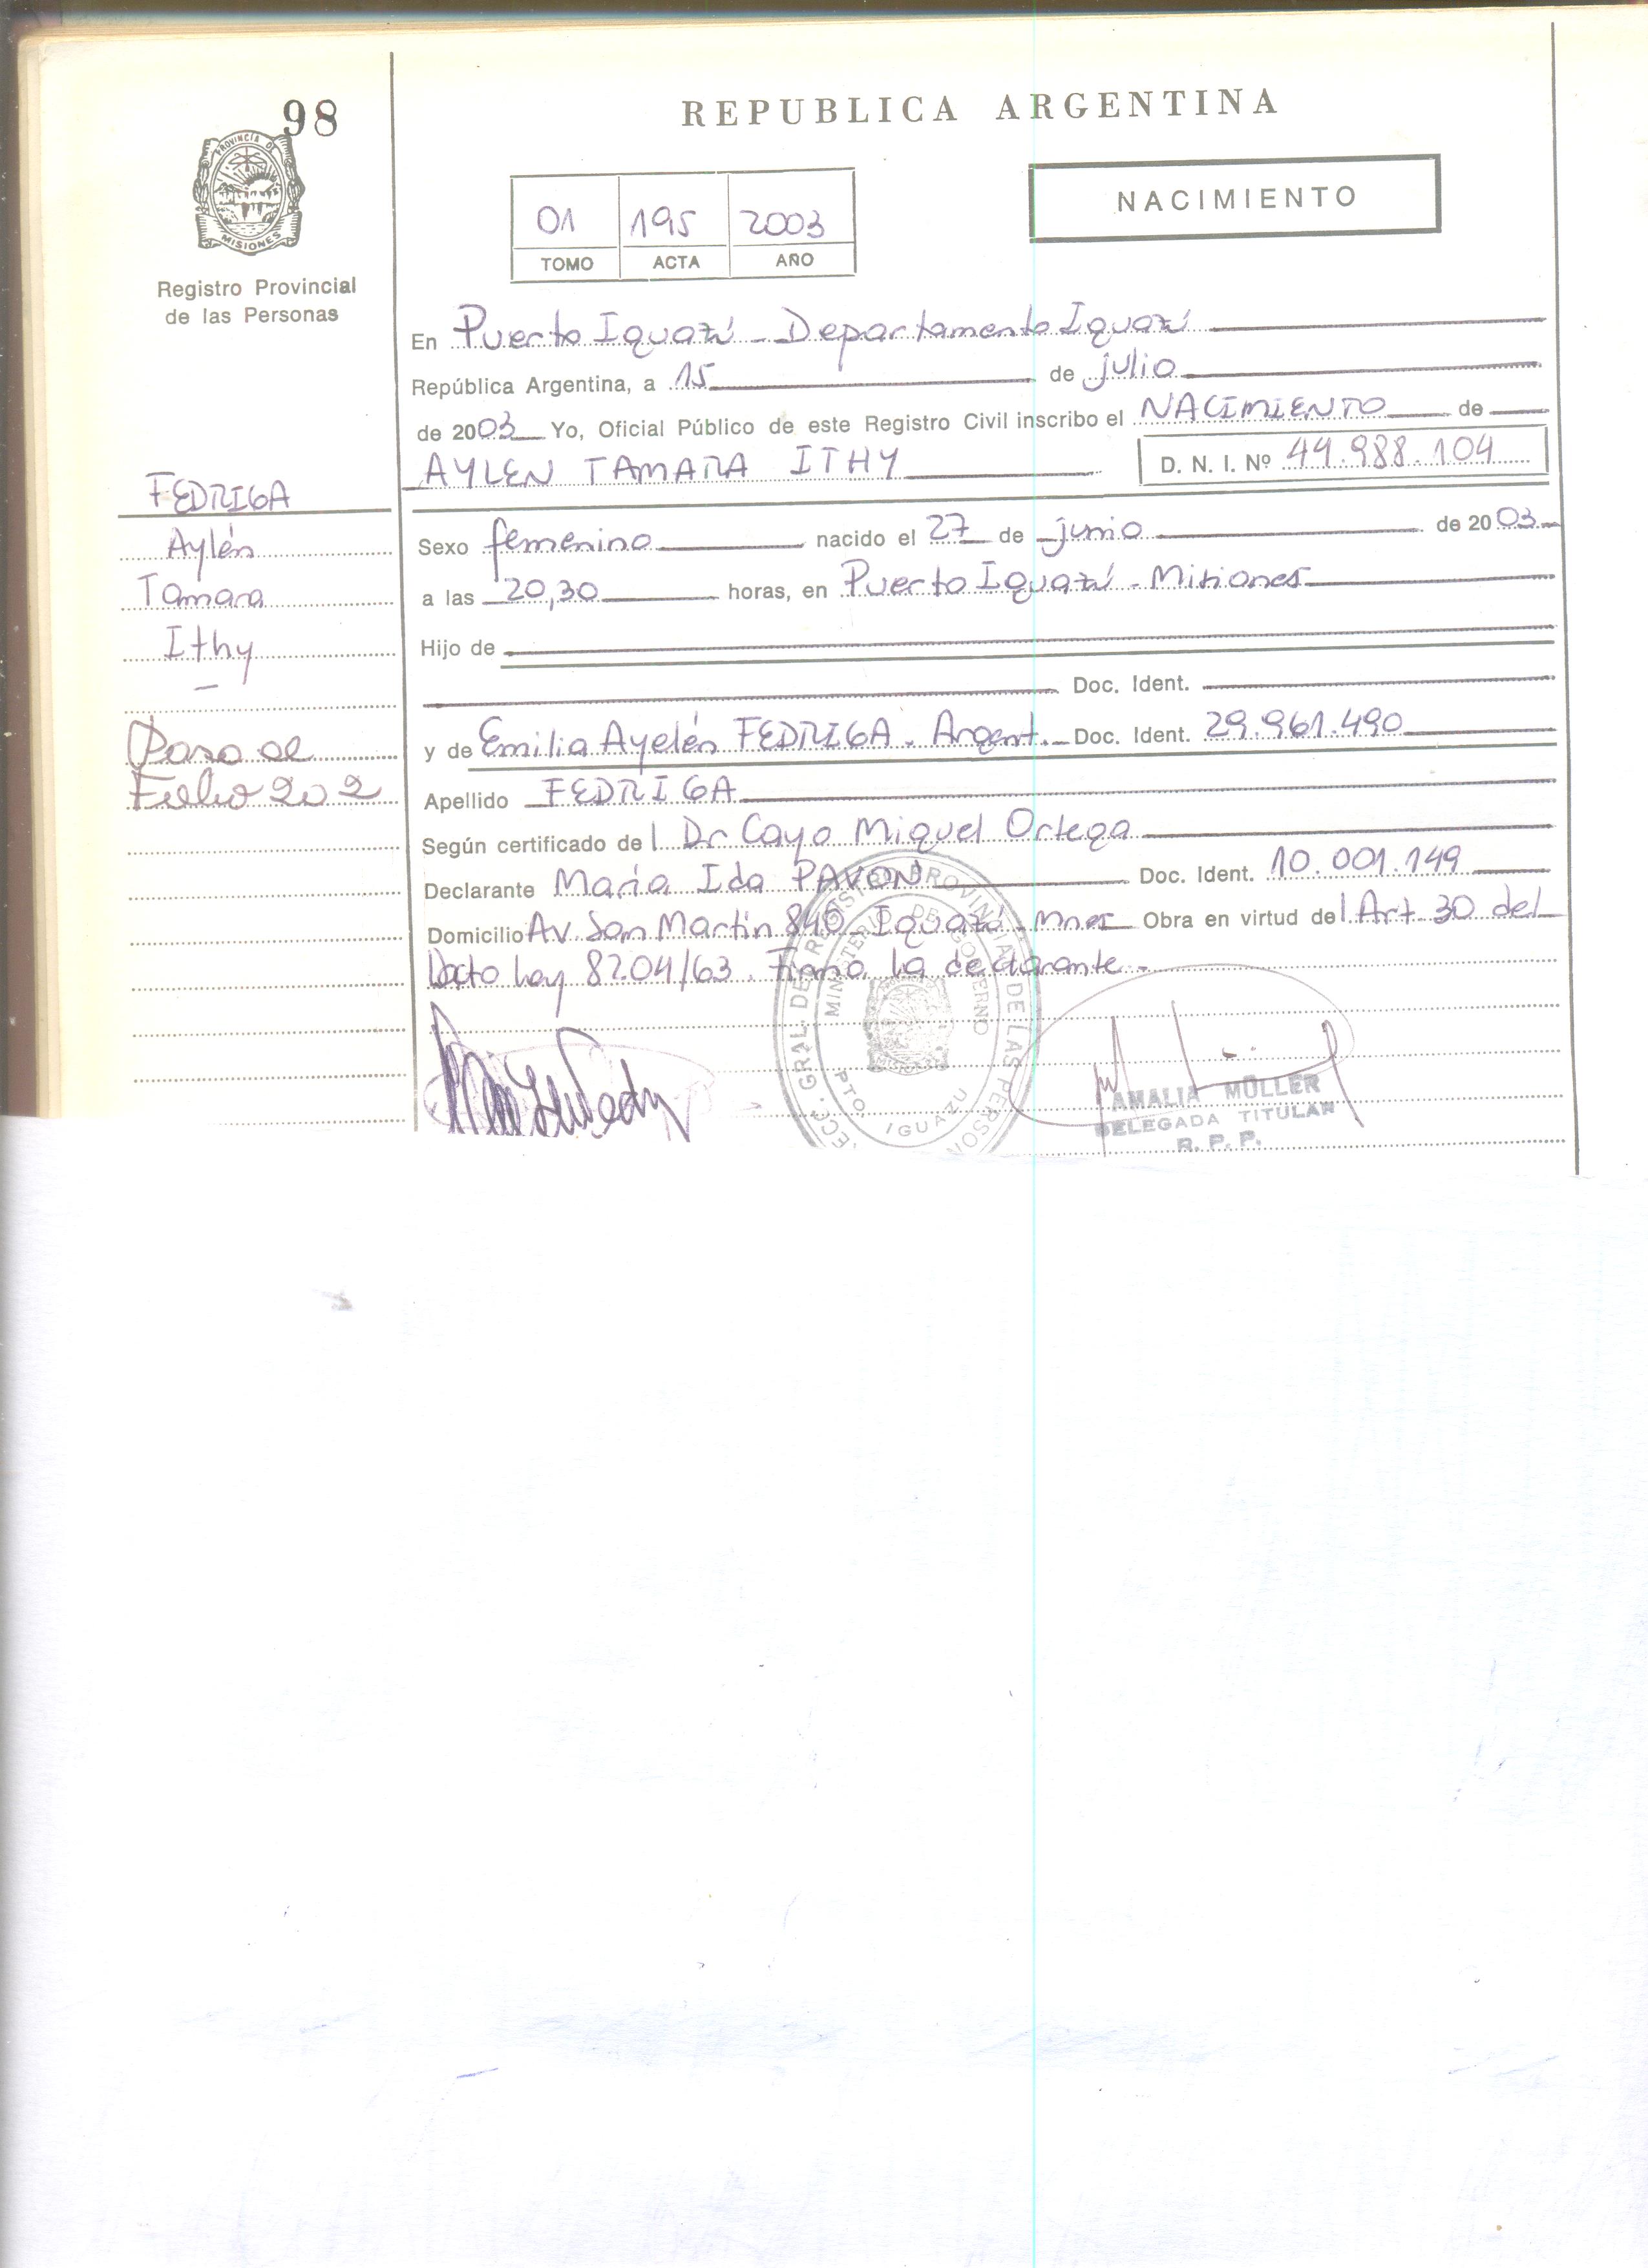 98
PROVINCIA DE
MISIONES
Registro Provincial
de las Personas
REPUBLICA ARGENTINA
01 195 2003
TOMO ACTA AÑO
NACIMIENTO
En Puerto Iguazú - Departamento Iguazú
República Argentina, a 15 de julio
de 2003 Yo, Oficial Público de este Registro Civil inscribo el NACIMIENTO de
AYLEN TAMARA ITHY D. N. I. Nº 44.988.104
Sexo femenino nacido el 27 de junio de 2003
a las 20,30 horas, en Puerto Iguazú - Misiones
Hijo de
Doc. Ident.
y de Emilia Ayelén FEDRIGA - Argent. Doc. Ident. 29.961.490
Apellido FEDRIGA
Según certificado del Dr Cayo Miguel Ortega
Declarante María Ida PAVON Doc. Ident. 10.001.149
Domicilio Av. San Martin 840 - Iguazú - Mnes Obra en virtud del Art. 30 del
Dcto Ley 8204/63. Firma la declarante.-
FEDRIGA
Aylén
Tamara
Ithy
-
Pasa al
Folio 202
GRAL. DE REGISTRO PROVINCIAL DE LAS PERSON
MINISTERIO DE GOBIERNO
PTO. IGUAZU
AMALIA MÜLLER
DELEGADA TITULAR
R. P. P.